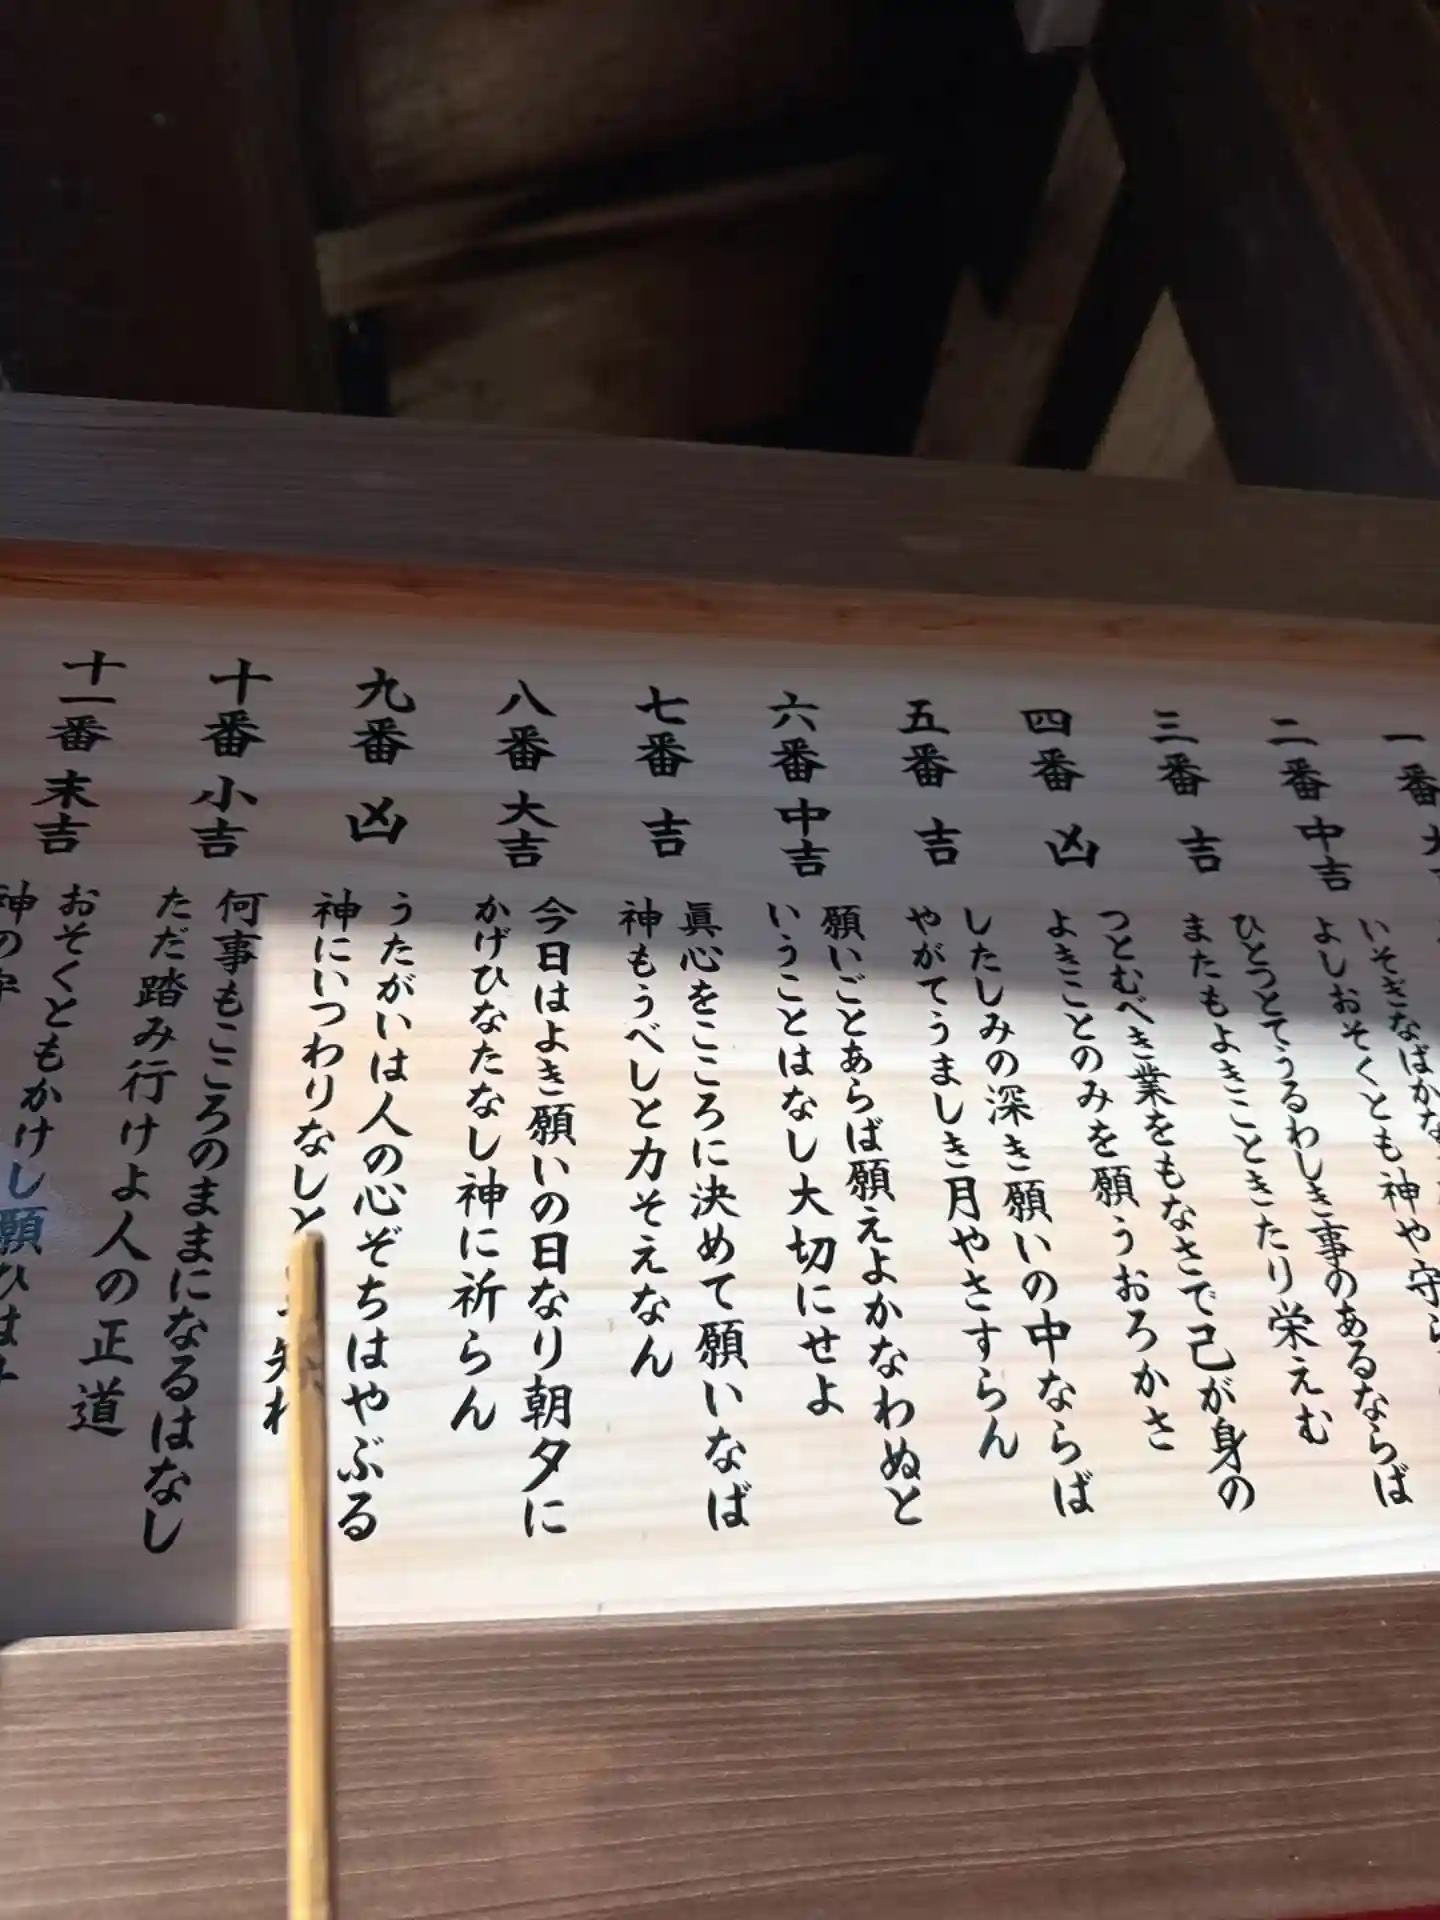 一番 大
いそぎなばかな
よしおそくとも神や守ら
二番 中吉
ひとつとてうるわしき事のあるならば
またもよきことときたり栄えむ
三番 吉
つとむべき業をもなさで己が身の
よきことのみを願うおろかさ
四番 凶
したしみの深き願いの中ならば
やがてうましき月やさすらん
五番 吉
願いごとあらば願えよかなわぬと
いうことはなし大切にせよ
六番 中吉
眞心をこころに決めて願いなば
神もうべしと力そえなん
七番 吉
今日はよき願いの日なり朝夕に
かげひなたなし神に祈らん
八番 大吉
うたがいは人の心ぞちはやぶる
神にいつわりなしと
九番 凶
何事もこころのままになるはなし
ただ踏み行けよ人の正道
十番 小吉
おそくともかけし願ひは
神の
十一番 末吉
六